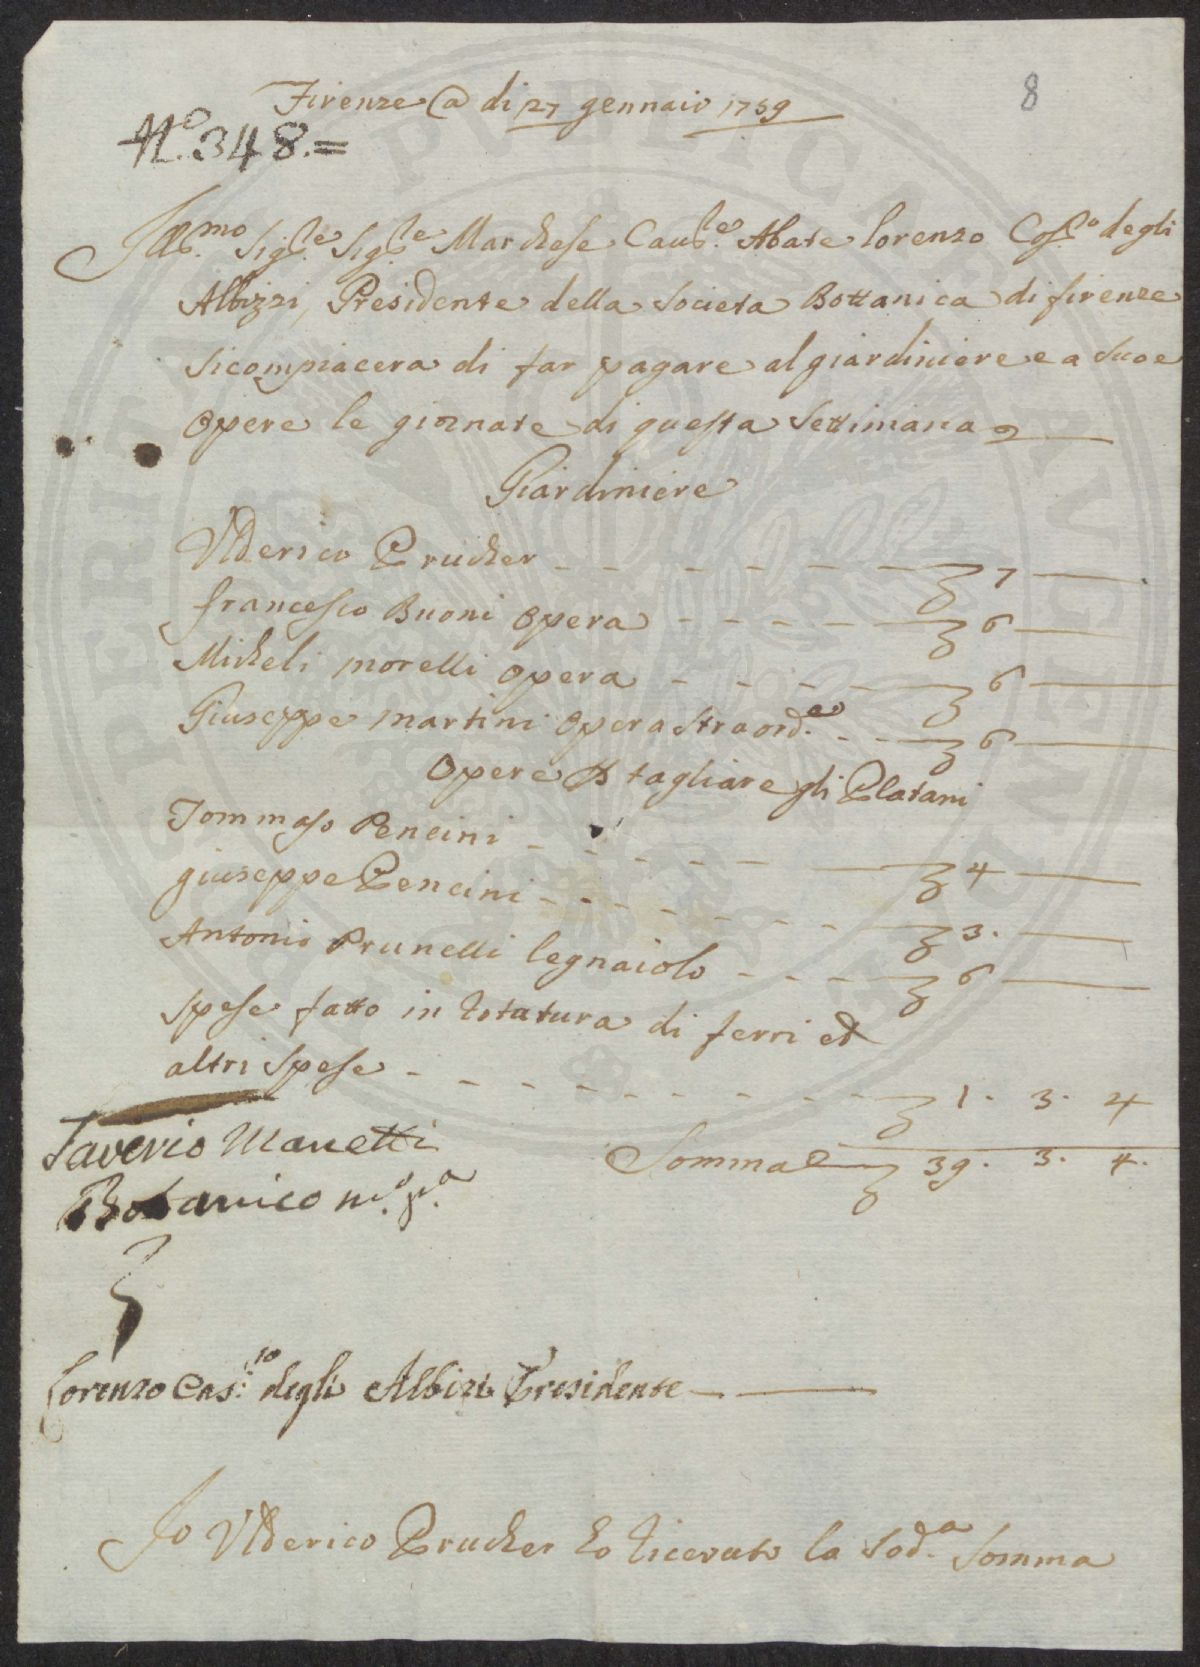 8
Firenze @ di 27 gennaio 1759
N.º 348.=
Ill.mo Sig.re Sig.re Marchese Cau.re Abate Lorenzo Cos.o degli
Albizzi, Presidente della Societa Bottanica di firenze
si compiacera di far pagare al giardiniere e a suoe
opere le giornate di questa settimana
Giardiniere
Ulderico Prucher - - - - - - 7 —
francesco Buoni opera - - - - 6 —
Micheli morelli opera - - - - 6 —
Giuseppe martini opera straord.a - - 6 —
Opere p tagliare gli Platani
Tommaso Pencini - - - - - - 4 —
giuseppe Pencini - - - - - - - 3. —
Antonio Prunelli legnaiolo - - - - 6 —
spese fatto in rotatura di ferri ed
altri spese - - - - - - - - - 1. 3. 4
Somma 39. 3. 4.
Saverio Manetti
Botanico m.o p.a
Lorenzo Cas.io degli Albizi Presidente
Io Ulderico Prucher ho ricevuto la sod.a somma